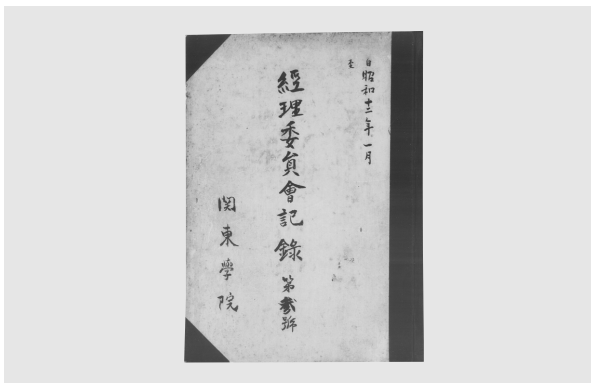 自昭和十二年一月
至
經理委員會記錄 第參號
関東學院